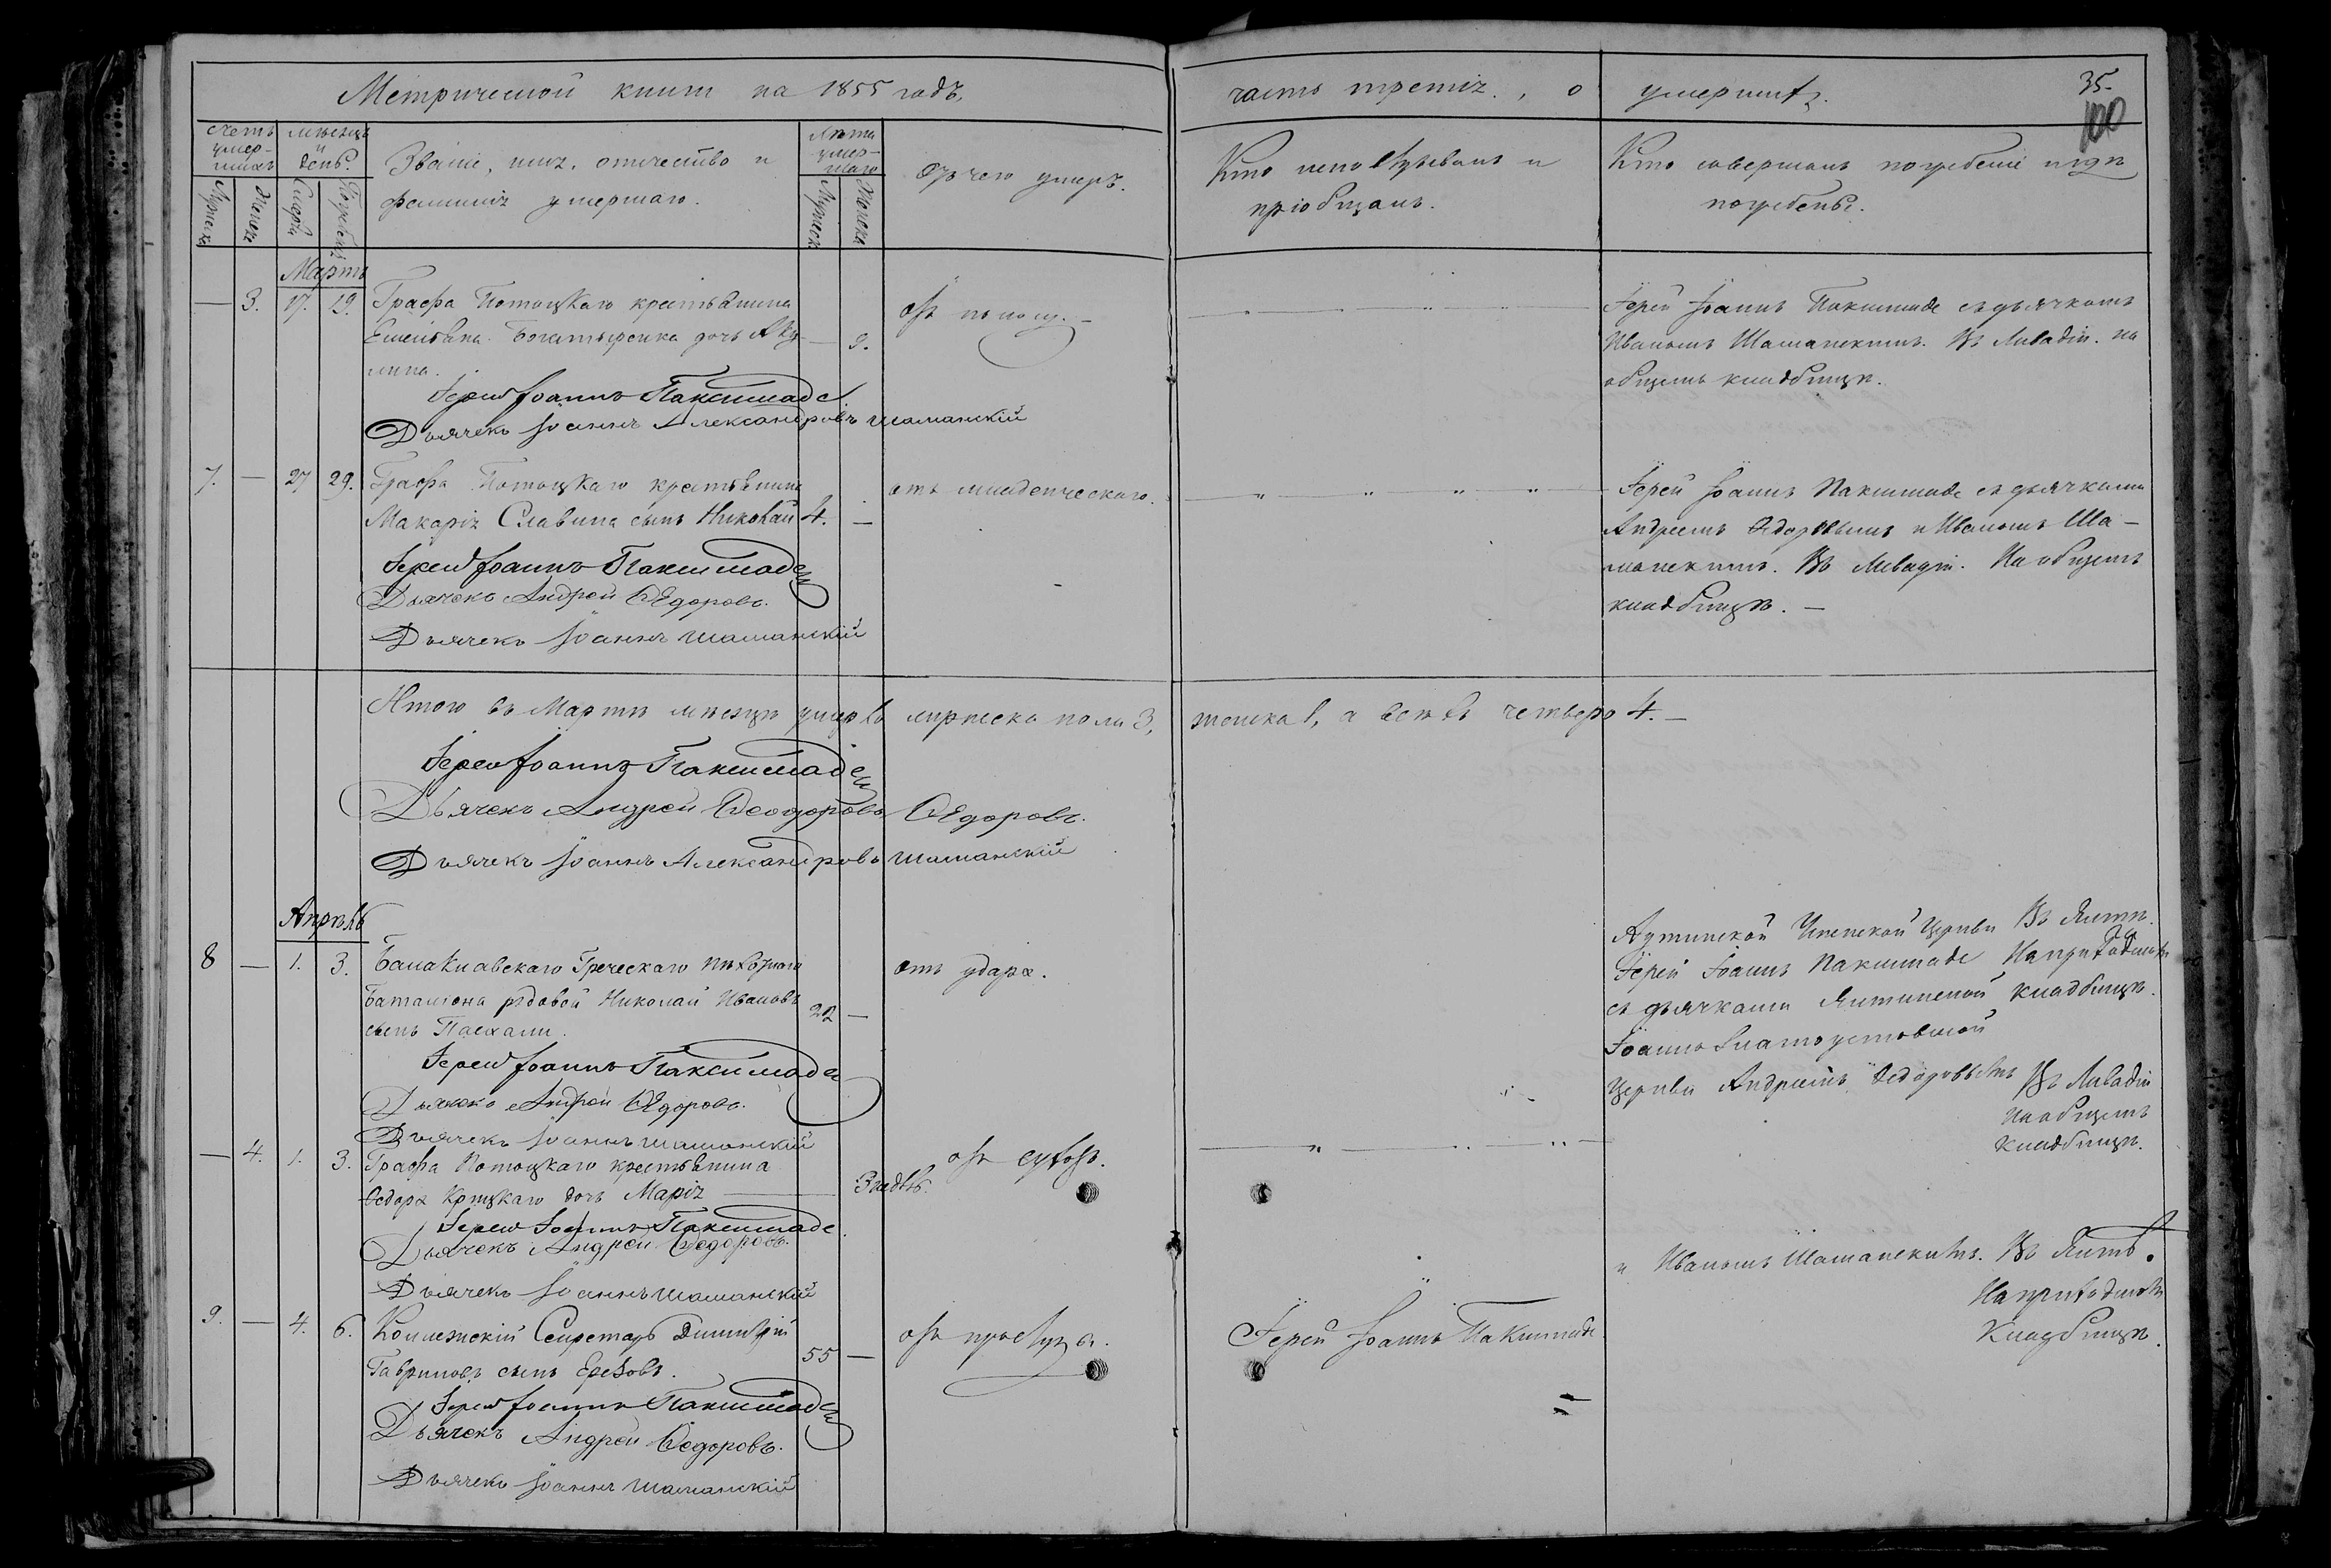 Метрической книги на 1855 годъ, часть третія, о умершихъ.
35.
100
Счетъ умер-шихъ
Мѣсяцъ и день.
Званіе, имя, отчество и фамилія умершаго.
Лѣта умер-шаго
Отъ чего умеръ.
Кто исповѣдывалъ и пріобщалъ.
Кто совершалъ погребеніе и гдѣ погребены.
Мужеска
Женска
Смерти
Погребенія
Мужеска
Женска
Мартъ
— 3. 17. 19. Графа Потоцкаго крестьянина
дочь Аку- — 9.
лина.
Іерей Іоаннъ Пакисмаде
Дьячекъ Іоаннъ Александровъ Шаманскій
Іерей Іоаннъ Пакисмаде съ дьячкомъ
Иваномъ Шаманскимъ. Въ Ливадіи. на
общемъ кладбищѣ.
7. — 27 29. Графа Потоцкаго крестьянина
Макарія Славина сынъ Николай 4. —
отъ младенческаго.
Іерей Іоаннъ Пакисмаде
Дьячекъ Андрей Ѳедоровъ.
Дьячекъ Іоаннъ Шаманскій
Іерей Іоаннъ Пакисмаде съ дьячками
Андреемъ Ѳедоровымъ и Иваномъ Ша-
манскимъ. Въ Ливадіи. На общемъ
кладбищѣ. —
Итого въ Мартѣ мѣсяцѣ умерло мужеска пола 3, женска 1, а всѣхъ четверо 4. —
Іерей Іоаннъ Пакисмаде
Дьячекъ Андрей Ѳеодоровъ Ѳедоровъ.
Дьячекъ Іоаннъ Александровъ Шаманскій
Апрѣль
8 — 1. 3. Балаклавскаго Греческаго пѣхотнаго
баталіона рядовой Николай Ивановъ 22 —
сынъ Пасхали.
отъ удара.
Іерей Іоаннъ Пакисмаде
Дьячекъ Андрей Ѳедоровъ.
Дьячекъ Іоаннъ Шаманскій
Аутинской Успенской Церкви
Іерей Іоаннъ Пакисмаде
съ дьячками Ялтинской
Іоанно Златоустовской
Церкви Андреемъ Ѳедоровымъ
Въ Ялтѣ.
На приходскомъ
кладбищѣ.
— 4. 1. 3. Графа Потоцкаго крестьянина
Ѳедора дочь Марія — 3 недѣль.
Іерей Іоаннъ Пакисмаде
Дьячекъ Андрей Ѳедоровъ.
Дьячекъ Іоаннъ Шаманскій
Въ Ливадіи
На общемъ
кладбищѣ.
9. — 4. 6. Коллежскій Секретарь Димитрій
Гавриловъ сынъ 55 —
отъ простуды.
Іерей Іоаннъ Пакисмаде
Іерей Іоаннъ Пакисмаде
Дьячекъ Андрей Ѳедоровъ.
Дьячекъ Іоаннъ Шаманскій
и Иваномъ Шаманскимъ. Въ Ялтѣ.
На приходскомъ
Кладбищѣ.